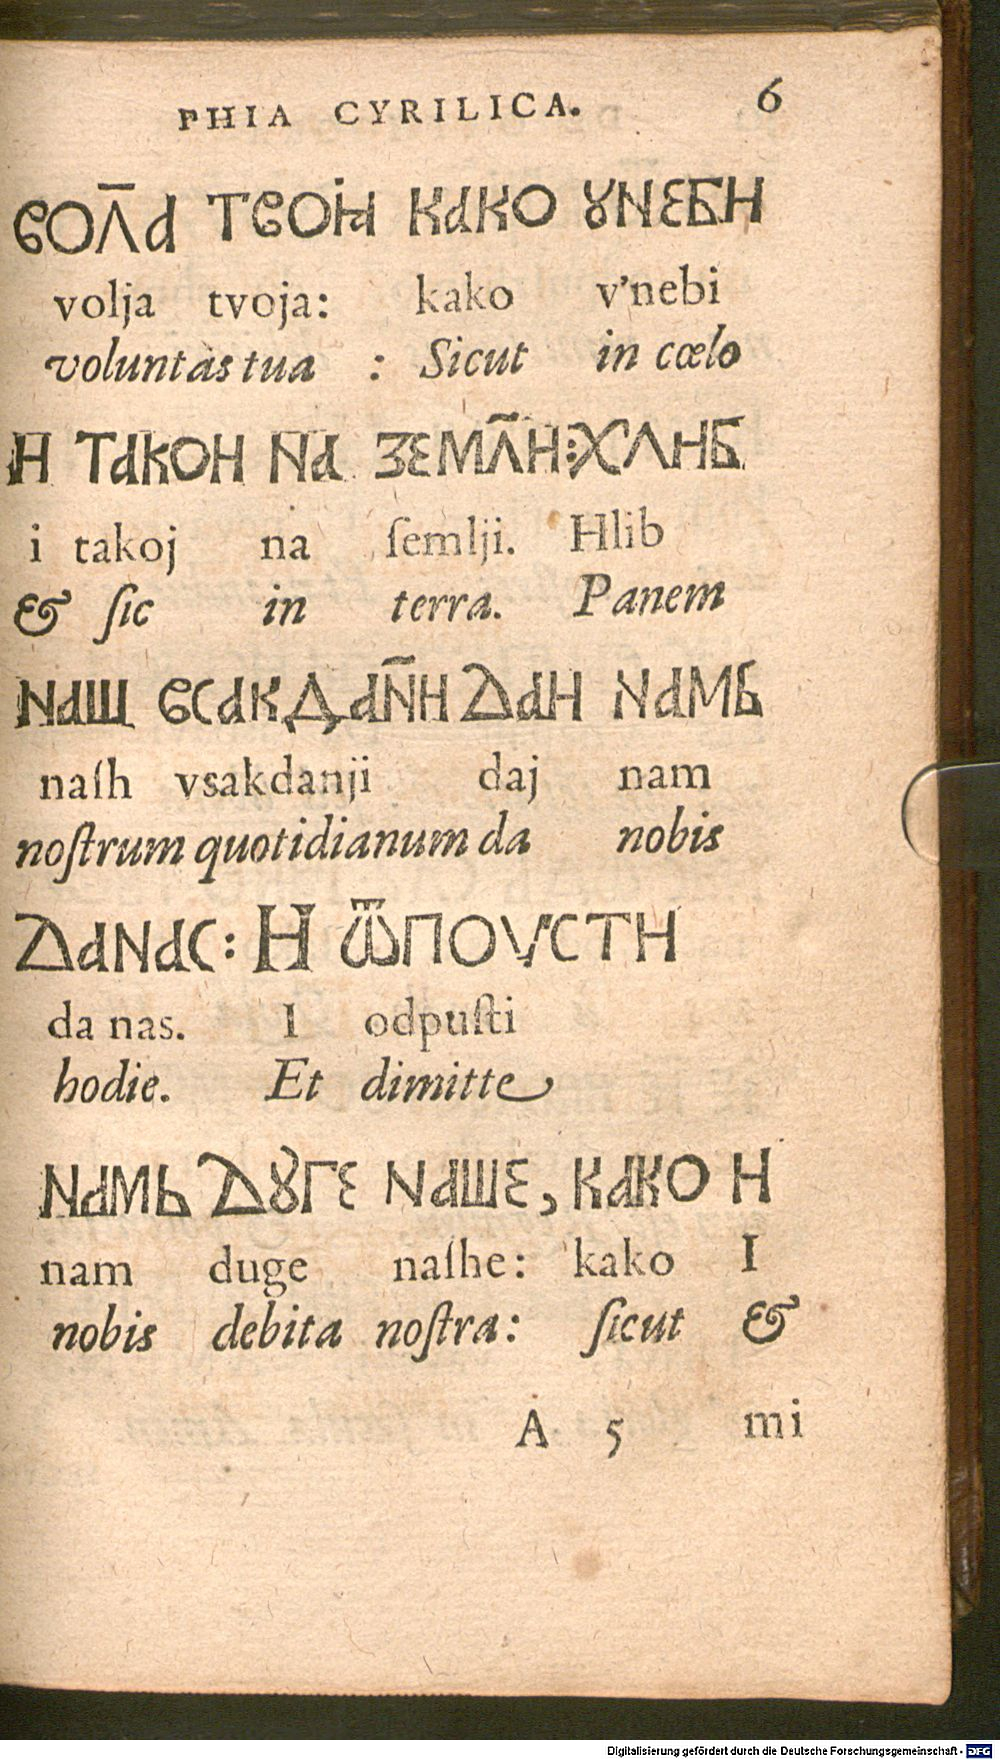 PHIA CYRILICA. 6
волⷶ҇а твоꙗ како ꙋнеби
volja tvoja: kako v'nebi
voluntas tua : Sicut in cœlo
и такои на земл҃и: хлиб
i takoj na ſemlji. Hlib
& ſic in terra. Panem
наш всакдан҃и даи намь
naſh vsakdanji daj nam
noſtrum quotidianum da nobis
данас: И ѿпоусти
da nas. I odpuſti
hodie. Et dimitte
намь дꙋге наше, како и
nam duge naſhe: kako I
nobis debita noſtra: ſicut &
A 5 mi
Digitalisierung gefördert durch die Deutsche Forschungsgemeinschaft - DFG